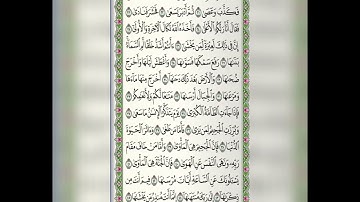 فَكَذَّبَ وَعَصَىٰ ۝٢١ ثُمَّ أَدْبَرَ يَسْعَىٰ ۝٢٢ فَحَشَرَ فَنَادَىٰ ۝٢٣
فَقَالَ أَنَا۠ رَبُّكُمُ ٱلْأَعْلَىٰ ۝٢٤ فَأَخَذَهُ ٱللَّهُ نَكَالَ ٱلْآخِرَةِ وَٱلْأُولَىٰٓ ۝٢٥
إِنَّ فِى ذَٰلِكَ لَعِبْرَةً لِّمَن يَخْشَىٰٓ ۝٢٦ ءَأَنتُمْ أَشَدُّ خَلْقًا أَمِ ٱلسَّمَآءُ
بَنَىٰهَا ۝٢٧ رَفَعَ سَمْكَهَا فَسَوَّىٰهَا ۝٢٨ وَأَغْطَشَ لَيْلَهَا وَأَخْرَجَ
ضُحَىٰهَا ۝٢٩ وَٱلْأَرْضَ بَعْدَ ذَٰلِكَ دَحَىٰهَآ ۝٣٠ أَخْرَجَ مِنْهَا مَآءَهَا
وَمَرْعَىٰهَا ۝٣١ وَٱلْجِبَالَ أَرْسَىٰهَا ۝٣٢ مَتَٰعًا لَّكُمْ وَلِأَنْعَٰمِكُمْ ۝٣٣
فَإِذَا جَآءَتِ ٱلطَّآمَّةُ ٱلْكُبْرَىٰ ۝٣٤ يَوْمَ يَتَذَكَّرُ ٱلْإِنسَٰنُ مَا سَعَىٰ ۝٣٥
وَبُرِّزَتِ ٱلْجَحِيمُ لِمَن يَرَىٰ ۝٣٦ فَأَمَّا مَن طَغَىٰ ۝٣٧ وَءَاثَرَ ٱلْحَيَوٰةَ
ٱلدُّنْيَا ۝٣٨ فَإِنَّ ٱلْجَحِيمَ هِىَ ٱلْمَأْوَىٰ ۝٣٩ وَأَمَّا مَنْ خَافَ مَقَامَ
رَبِّهِۦ وَنَهَى ٱلنَّفْسَ عَنِ ٱلْهَوَىٰ ۝٤٠ فَإِنَّ ٱلْجَنَّةَ هِىَ ٱلْمَأْوَىٰ ۝٤١
يَسْـَٔلُونَكَ عَنِ ٱلسَّاعَةِ أَيَّانَ مُرْسَىٰهَا ۝٤٢ فِيمَ أَنتَ مِن
ذِكْرَىٰهَآ ۝٤٣ إِلَىٰ رَبِّكَ مُنتَهَىٰهَآ ۝٤٤ إِنَّمَآ أَنتَ مُنذِرُ مَن يَخْشَىٰهَا